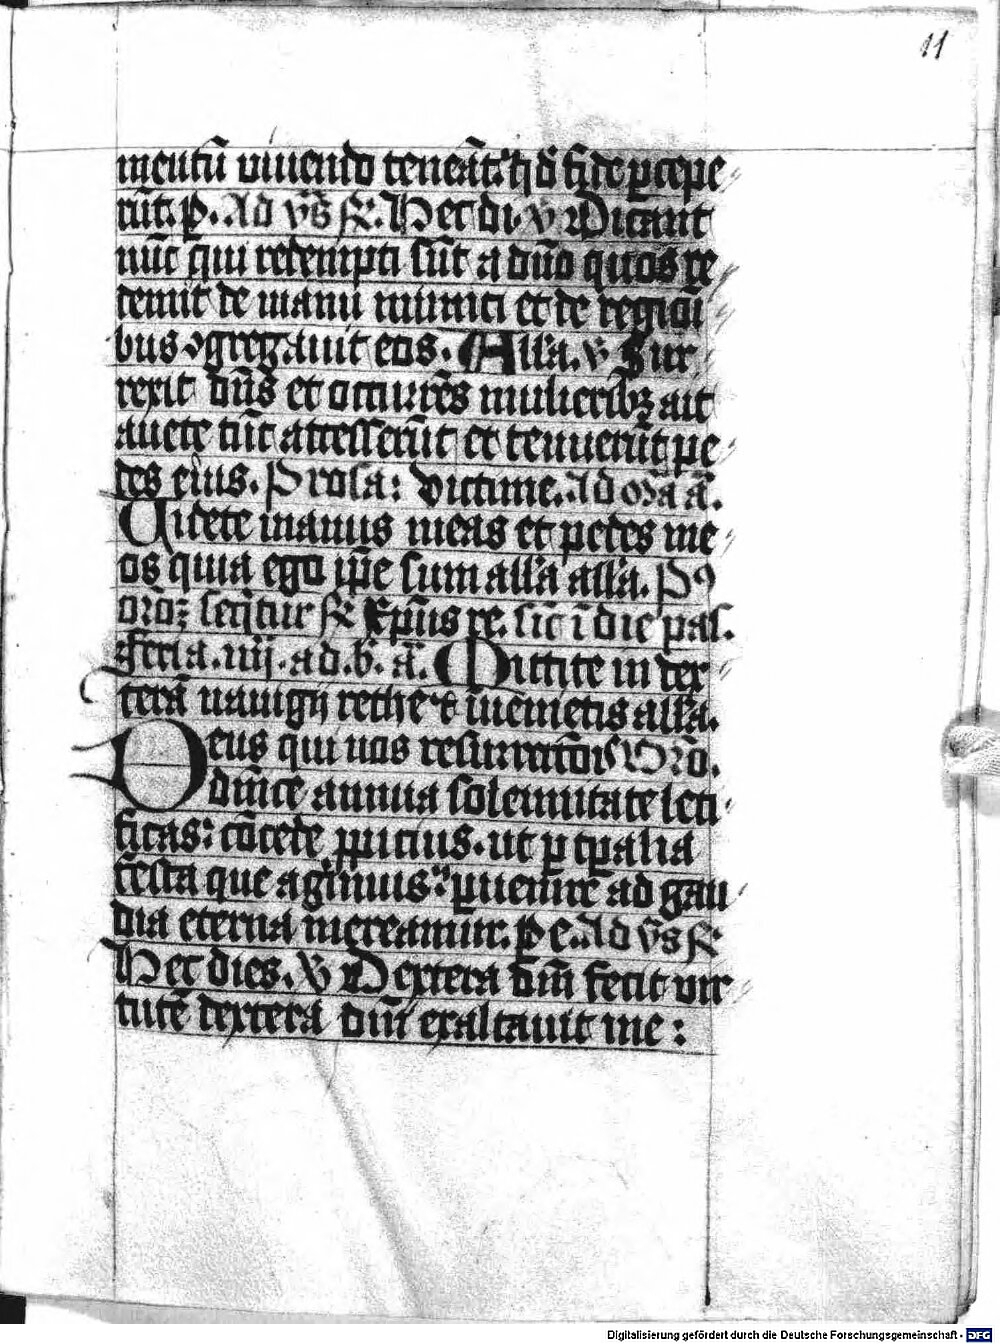 11
mentū viuendo teneāt: q̄ d̄ fide ꝑcepe
rūt. P. Ad vs̄ ℟. Hec di. ℣ Dicant
nūc qui redempti sūt a dn̄o quos re
demit de manu inimici et de regioi
bus ꝯgregauit eos. Alla. ℣ Sur
rexit dn̄s et occurrēs mulieribꝫ ait
auete tūc accesserūt et tenuerūt pe
des eius. Prosa: Victime. Ad ora ā.
Uidete manus meas et pedes me
os quia ego ip̄e sum alla alla. Pꝰ
oroꝫ seqitur ℟ Ep̄us re. sic ī die pas.
Feria. iiij. ad. b. ā. Mittite in dex
terā nauigij rethe et īuenietis alla.
Deus qui nos resurrectiōis Oro.
dn̄ice annua solemnitate leti
ficas: cōcede ꝓpicius. ut ꝑ tꝑalia
festa que agimus: ꝑuenire ad gau
dia eterna mereamur. Pe. Ad vs̄ ℟
Hec dies. ℣ Dextera dn̄i fecit vir
tutē dextera dn̄i exaltauit me:
Digitalisierung gefördert durch die Deutsche Forschungsgemeinschaft - DFG